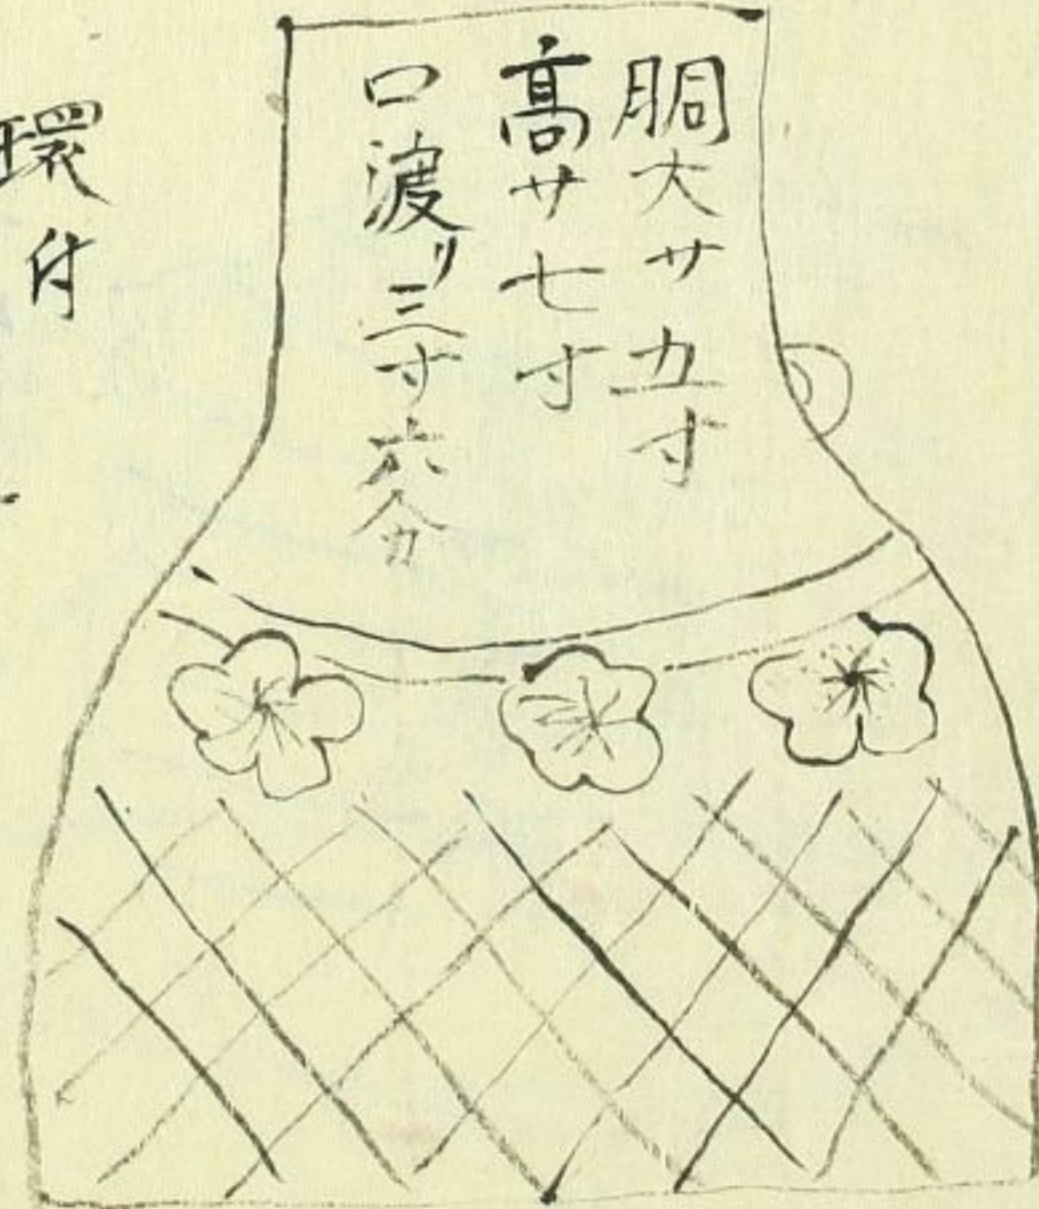 胴大サ五寸
高サ七寸
口渡リ三寸六分
環付